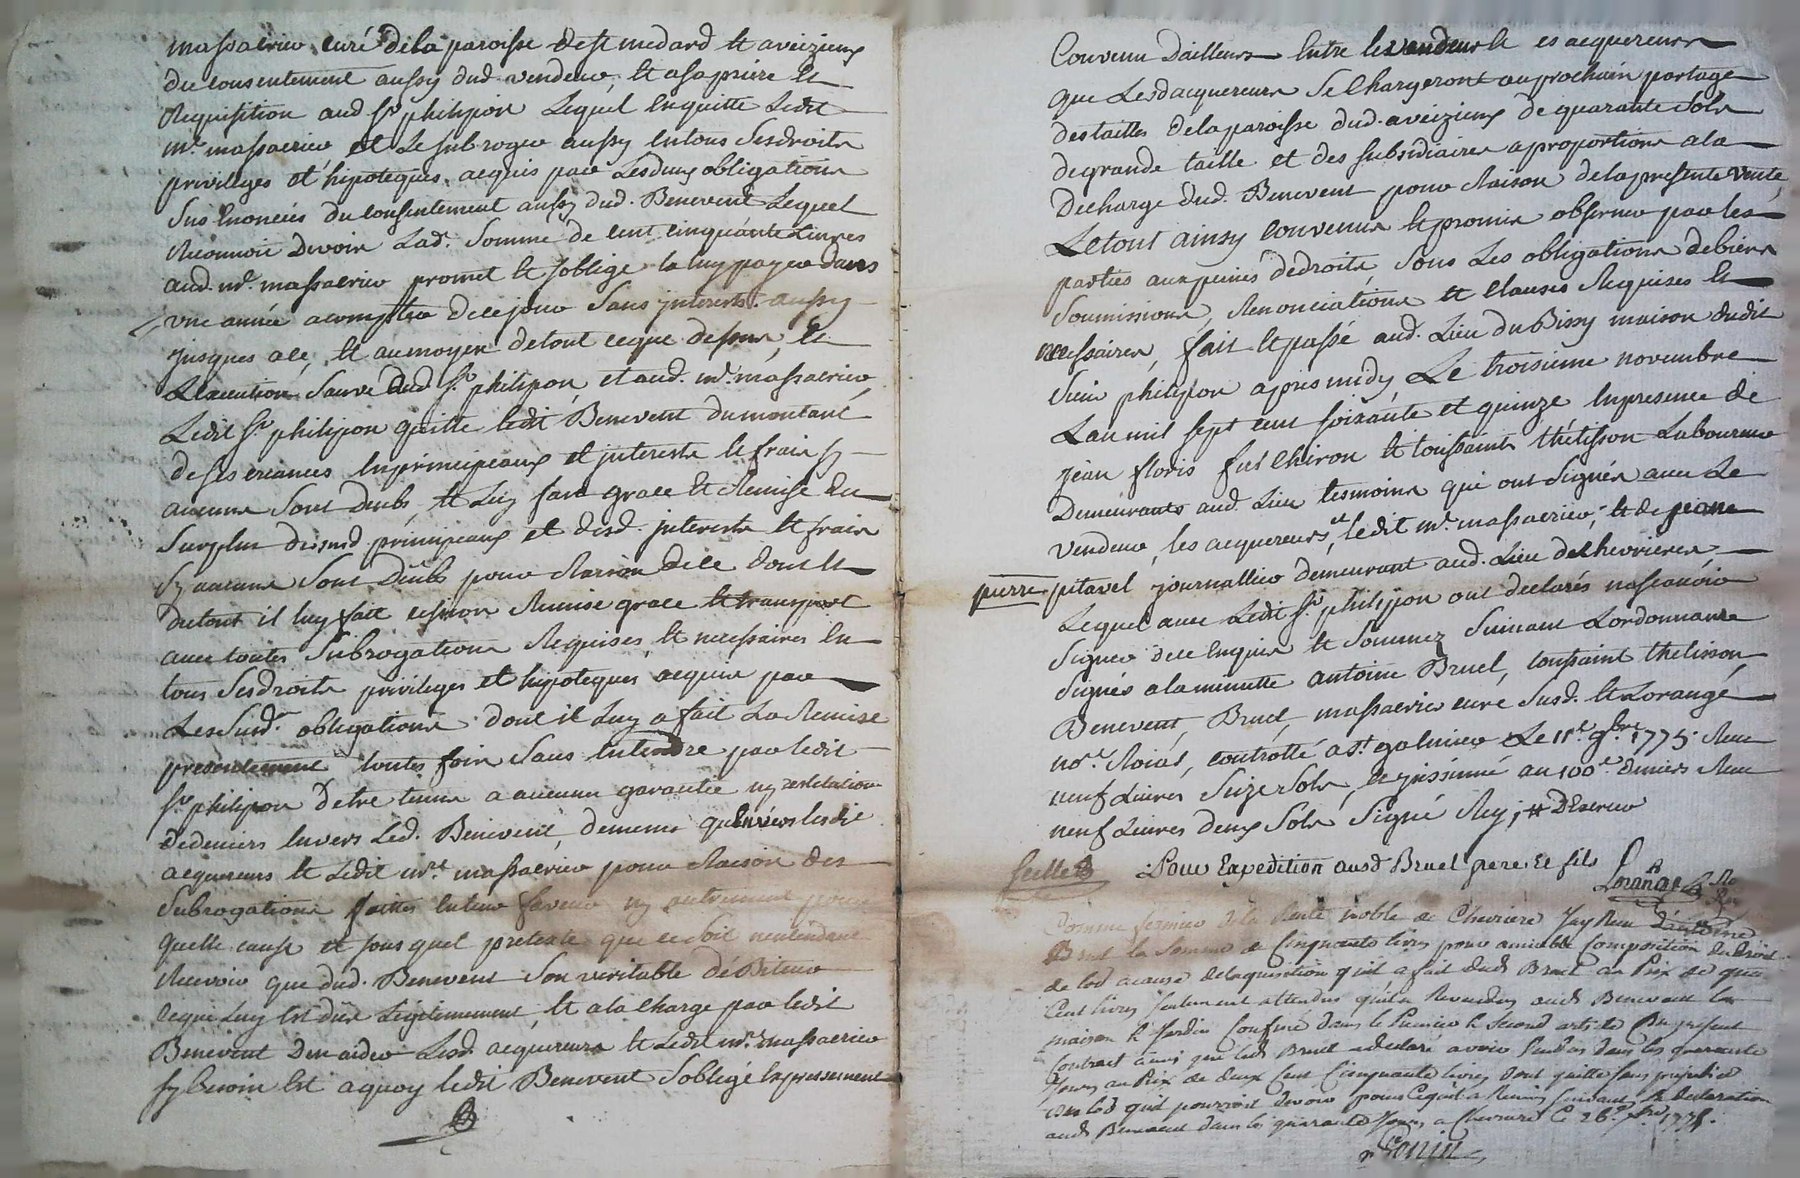 massacrier curé de la paroisse de st medard et aveizieux
du consentement aussy dud. vendeur, et a sa priere et
Requisition aud sr. philipon Lequel en quitte Ledit
mr. massacrier et Le subroge aussy en tous ses droits
privileges et hipoteques acquis par Lesdues obligations
sus Enoncées du consentement aussy dud. Benevent Lequel
Reconnoit devoir Lad. Somme de cent cinquante Livres
aud. mr. massacrier promet et soblige la luy payer dans
une année a compter de ce jour sans interest aussy
jusques a ce, et au moyen de tout ce que dessus, et
Lexecution Sauve dud sr. philipon, et aud. mr. massacrier
Ledit sr. philipon quitte ledit Benevent du montant
de ses creances en principeaux et interests et frais sy
aucuns sont deubs, et Luy fait grace et Remise du
Surplus desusd. principeaux et desd. interests et frais
sy aucuns sont deubs pour Raison de ce dont et
du tout il luy fait cession Remise grace et transport
avec toutes subrogations Requises et necessaires en
tous ses droits privileges et hipoteques acquis par
Les susd. obligations dont il luy a fait La Remise
presentement toutes fois sans entendre par ledit
sr. philipon detre tenu a aucune garantie ny restitution
de deniers envers Led. Benevent, de meme qu'envers lesdit
acquereurs et Ledit mre. massacrier pour Raison des
subrogations faittes en leur faveur ny autrement pour
quelle cause et sous quel pretexte que ce soit nentendant
Recevoir que dud. Benevent son veritable débiteur
ce qui Luy est dub Legitimement, et a la charge par ledit
Benevent d'en aider Lesd. acquereurs et Ledit mr. massacrier
sy besoin est a quoy ledit Benevent s'oblige expressement
Convenu Dailleurs Entre les vendeur et es acquereurs
que Lesd acquereurs se Chargeront au prochain partage
des tailles de la paroisse dud. aveizieux de quarante sols
de grande taille et des subsidiaires a proportions a la
Decharge dud. Benevent pour Raison de la presente vente,
Le tout ainsy convenus et promis observer par les
parties aux peines de droits, sous Les obligations de biens
soumissions, Renonciations et clauses Requises et
necessaires, fait et passé aud. Lieu du Bissy maison dudit
Sieur philipon apres midy Le troisieme novembre
Lan mil sept cent soixante et quinze En presence de
jean floris fut Chiron et toussaint thelisson Laboureur
Demeurants aud. Lieu tesmoins qui ont signés avec Le
vendeur, les acquereurs, et ledit mr. massacrier, et de jeane
pierre pitavel journallier demeurant aud. Lieu de chevrieres
Lequel avec Ledit sr. philipon ont declarés ne scavoir
signer de ce Enquis et sommez suivant Lordonnance
signés a la minutte antoine Bruel, toussaint thelisson,
Benevent, Bruel, massacrier curé susd. et Lorange
nore. Roial, controllé a st. galmier Le 11e. 9bre 1775. Reçu
neuf Livres seize sols, et jnssinué au 100e. deniers Reçu
neuf Livres deux sols signé Rey,
Seellé Pour Expedition ausd Bruel pere et fils
Lorange
Comme fermier de la Rente noble de Chevriere Jay Recu d'antoine
Bruel la somme de Cinquante livres pour amiable Composition du droit
de lod a cause de laquisition quil a fait dudt Bruel au Prix de
Cent livres seulement attendus quil a audt Benevent la
maison et Jardin Confiné dans le Premier et second article Du present
Contract ainsi que ledt Bruel a declaré avoir dans les quarante
Jours au Prix de deux Cent Cinquante livres dont quitte sans prejudice
des lod quil pourroit devoir suivant la declaration
audt Benevent dans les quarante Jours a Chevriere Ce 26e. 1775.